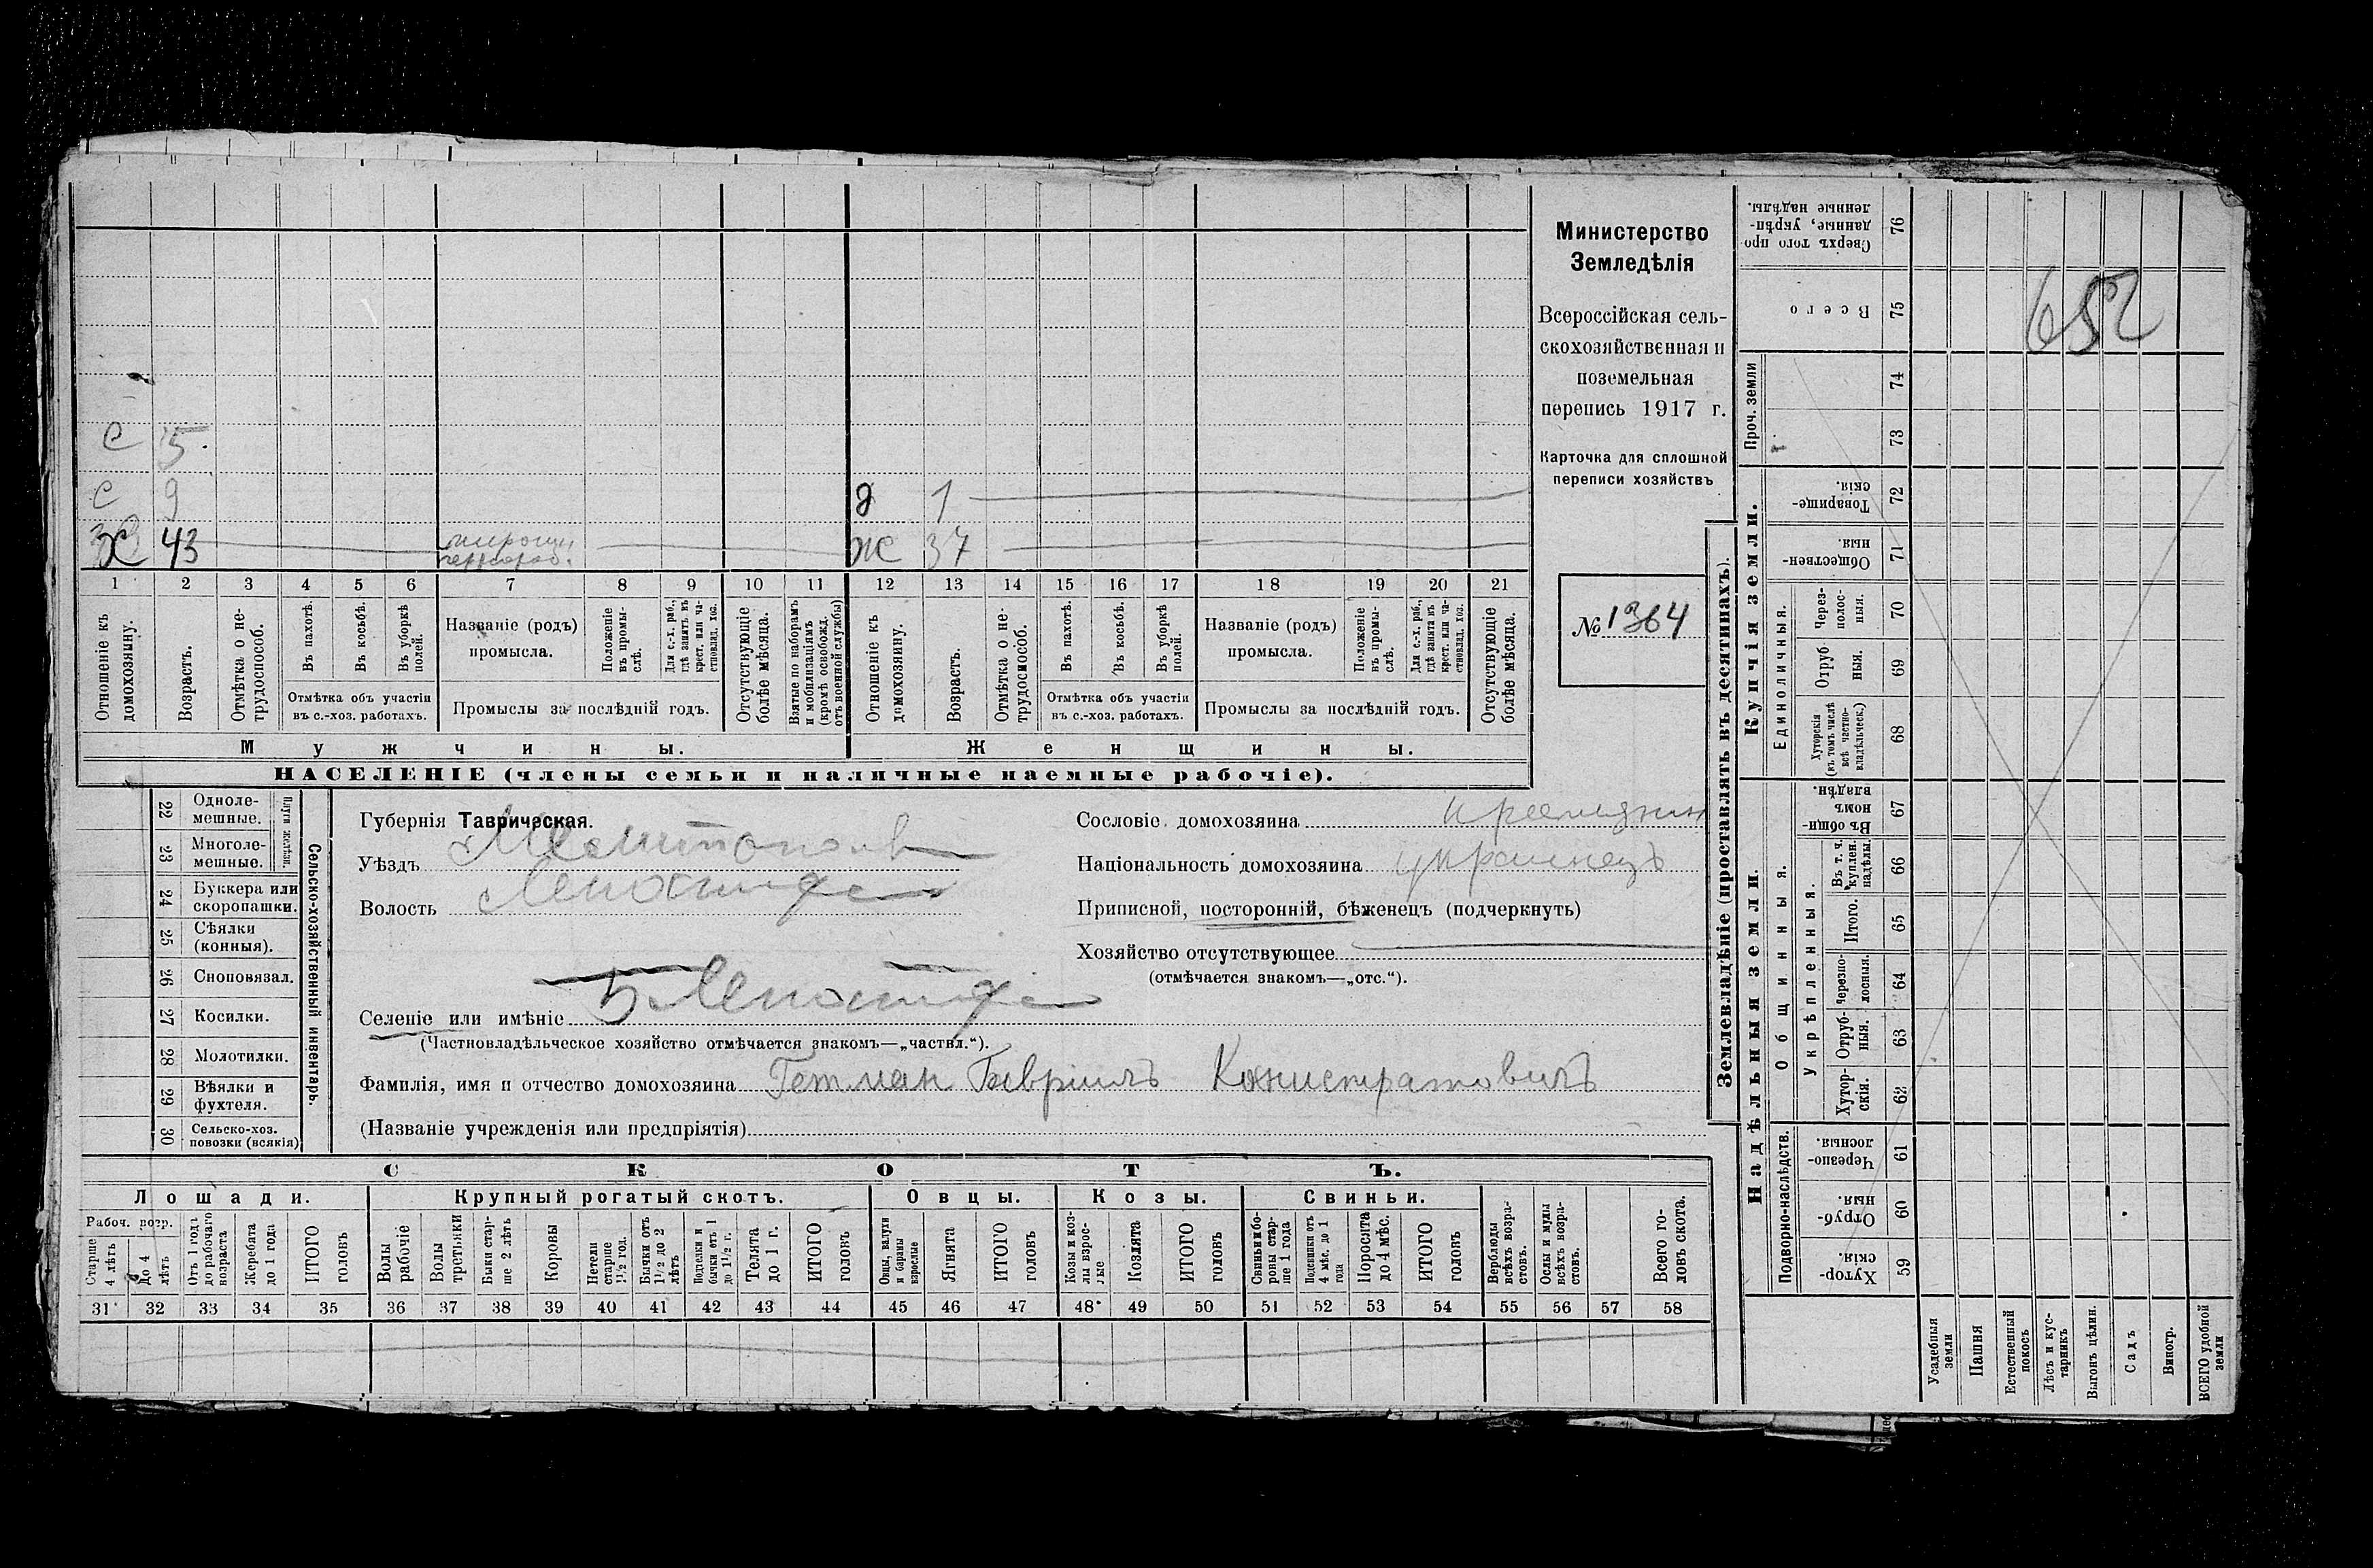 Министерство
Земледѣлія
Всероссійская сель-
скохозяйственная и
поземельная
перепись 1917 г.
Карточка для сплошной
переписи хозяйствъ
№ 1364
652
С 5.
С 9
Х 43
д 1
Ж 37
1 2 3 4 5 6 7 8 9 10 11 12 13 14 15 16 17 18 19 20 21
Отношеніе къ домохозяину.
Возрастъ.
Отмѣтка о не-трудоспособ.
Въ пахотѣ.
Въ косьбѣ.
Въ уборкѣ полей.
Отмѣтка объ участіи въ с.-хоз. работахъ.
Названіе (родъ) промысла.
Положеніе въ промы-слѣ.
Для с.-х. раб., гдѣ занятъ въ крест. или ча-стновлад. хоз.
Промыслы за послѣдній годъ.
Отсутствующіе болѣе мѣсяца.
Взятые по наборамъ и мобилизаціямъ (кромѣ освобожд. отъ военной службы)
Отношеніе къ домохозяину.
Возрастъ.
Отмѣтка о не-трудоспособ.
Въ пахотѣ.
Въ косьбѣ.
Въ уборкѣ полей.
Отмѣтка объ участіи въ с.-хоз. работахъ.
Названіе (родъ) промысла.
Положеніе въ промы-слѣ.
Для с.-х. раб., гдѣ занята въ крест. или ча-стновлад. хоз.
Промыслы за послѣдній годъ.
Отсутствующіе болѣе мѣсяца.
Мужчины.
Женщины.
НАСЕЛЕНІЕ (члены семьи и наличные наемные рабочіе).
22 Одноле-мешные.
23 Многоле-мешные.
24 Буккера или скоропашки.
25 Сѣялки (конныя).
26 Сноповязал.
27 Косилки.
28 Молотилки.
29 Вѣялки и фухтеля.
30 Сельско-хоз. повозки (всякія)
Сельско-хозяйственный инвентарь.
Губернія Таврическая.
Уѣздъ Мелитопол
Волость Лепатиха
Селеніе или имѣніе Б Лепатиха
(Частновладѣльческое хозяйство отмѣчается знакомъ—„частвл.“).
Фамилія, имя и отчество домохозяина Гетман Гавріилъ Конистратовичъ
(Названіе учрежденія или предпріятія)
Сословіе домохозяина крестянин
Національность домохозяина украинецъ
Приписной, посторонній, бѣженецъ (подчеркнуть)
Хозяйство отсутствующее
(отмѣчается знакомъ—„отс.“).
СКОТЪ.
Лошади.
Крупный рогатый скотъ.
Овцы.
Козы.
Свиньи.
Рабоч. возр.
Старше 4 лѣтъ
До 4 лѣтъ
Отъ 1 года до рабочаго возраста
Жеребята до 1 года
ИТОГО головъ
Волы рабочіе
Волы третьяки
Быки стар-ше 2 лѣтъ
Коровы
Нетели старше 1½ год.
Бычки отъ 1½ до 2 лѣтъ
Подтелки и бычки отъ 1 до 1½ г.
Телята до 1 г.
ИТОГО головъ
Овцы, валухи и бараны взрослые
Ягнята
ИТОГО головъ
Козы и коз-лы взрос-лые
Козлята
ИТОГО головъ
Свиньи и бо-ровы стар-ше 1 года
Подсвинки отъ 4 мѣс. до 1 года
Поросята до 4 мѣс.
ИТОГО головъ
Верблюды всѣхъ возра-стовъ.
Ослы и мулы всѣхъ возра-стовъ.
Всего го-ловъ скота.
31 32 33 34 35 36 37 38 39 40 41 42 43 44 45 46 47 48 49 50 51 52 53 54 55 56 57 58
Землевладѣніе (проставлять въ десятинахъ).
Надѣльныя земли.
Купчія земли.
Проч. земли
Подворно-наслѣдств.
Общинныя.
Укрѣпленныя.
Единоличныя.
Сверхъ того про-данные, укрѣп-ленные надѣлы. 76
Всего 75
74
73
Товарище-скія. 72
Обществен-ныя. 71
Через-полос-ныя. 70
Отруб-ныя. 69
Хуторскія (въ томъ числѣ всѣ частно-владѣльческ.) 68
Въ общи-номъ владѣн. 67
Въ т. ч. куплен. надѣлы. 66
Итого. 65
Черезпо-лосныя. 64
Отруб-ныя. 63
Хутор-скія. 62
Черезпо-лосныя. 61
Отруб-ныя. 60
Хутор-скія. 59
Усадебныя земли
Пашня
Естественный покосъ
Лѣсъ и кус-тарникъ
Выгонъ цѣлин.
Садъ
Виногр.
ВСЕГО удобной земли